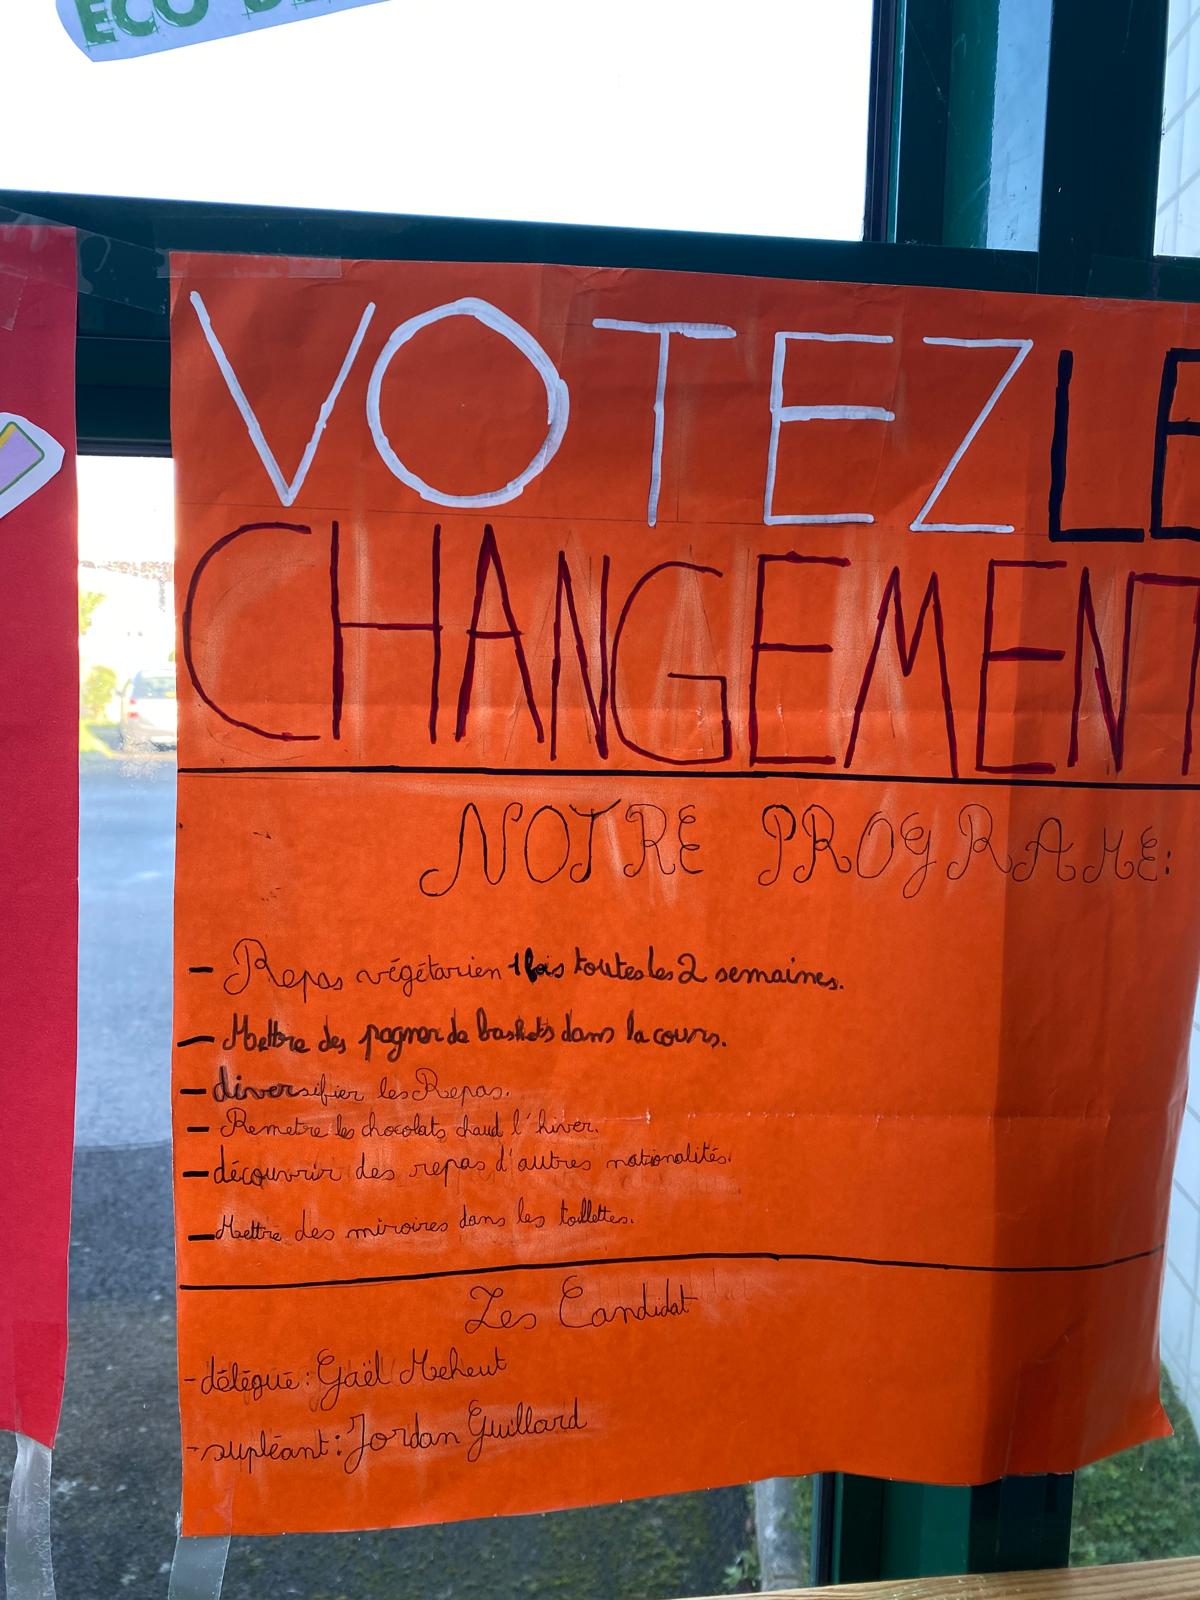 ECO DE
VOTEZ LE
CHANGEMENT
NOTRE PROGRAME:
- Repas végétarien 1 fois toutes les 2 semaines.
- Mettre des pagner de baskets dans la cours.
- diversifier les Repas.
- Remetre les chocolats chaud l'hiver.
- découvrir des repas d'autres nationalités.
- Mettre des miroires dans les toillettes.
Les Candidat
- délégué: Gaël Meheut
- supléant: Jordan Guillard